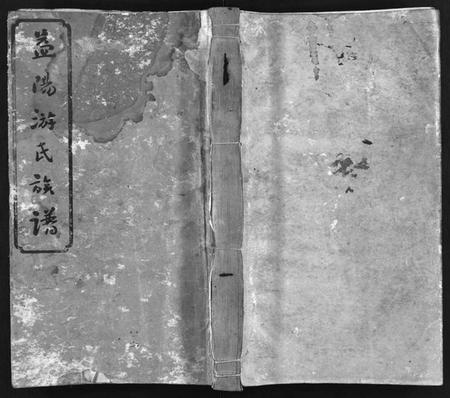 益陽游氏族譜